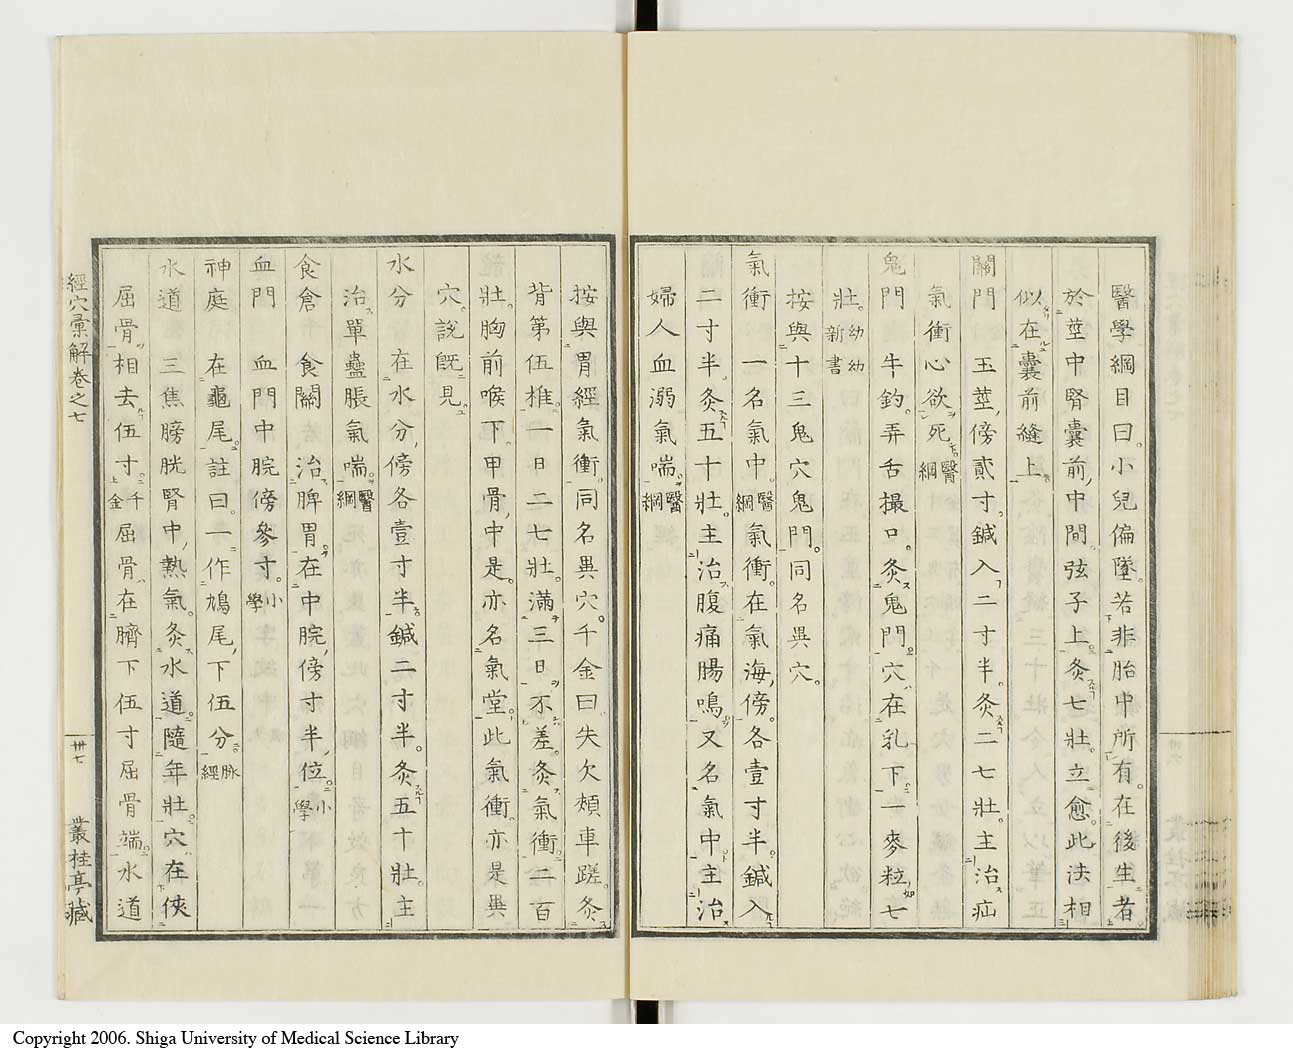 醫學綱目曰小兒偏墜若非胎中所有在後生者
於莖中腎囊前中間弦子上灸七壯立愈此法相
似在囊前縫上
關門　玉莖傍貳寸鍼入二寸半灸二七壯主治疝
氣衝心欲死醫綱
鬼門　牛釣弄舌撮口灸鬼門穴在乳下一麥粒七
壯幼幼新書
按與十三鬼穴鬼門同名異穴
氣衝　一名氣中醫綱氣衝在氣海傍各壹寸半鍼入
二寸半灸五十壯主治腹痛腸鳴又名氣中主治
婦人血溺氣喘醫綱
按與胃經氣衝同名異穴千金曰失欠頰車蹉灸
背第伍椎一日二七壯滿三日不差灸氣衝二百
壯胸前喉下甲骨中是亦名氣堂此氣衝亦是異
穴說既見
水分　在水分傍各壹寸半鍼二寸半灸五十壯主
治單蠱脹氣喘醫綱
食倉　食關治脾胃在中脘傍寸半位小學
血門　血門中脘傍參寸小學
神庭　在龜尾註曰一作鳩尾下伍分脉經
水道　三焦膀胱腎中熱氣灸水道隨年壯穴在俠
屈骨相去伍寸千金上屈骨在臍下伍寸屈骨端水道
經穴彙解卷之七
卅七
叢桂亭藏
Copyright 2006. Shiga University of Medical Science Library